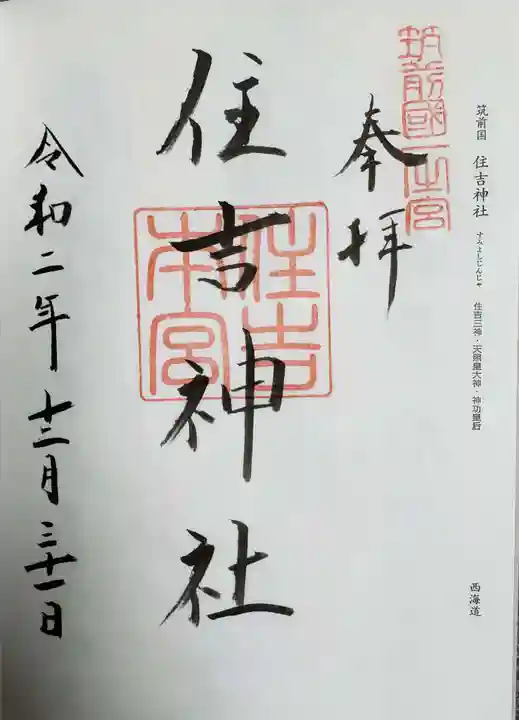 筑前国 住吉神社 すみよしじんじゃ 住吉三神・天照皇大神・神功皇后
西海道
筑前國一之宮
奉拝
住吉神社
住吉
本宮
令和二年十二月三十一日